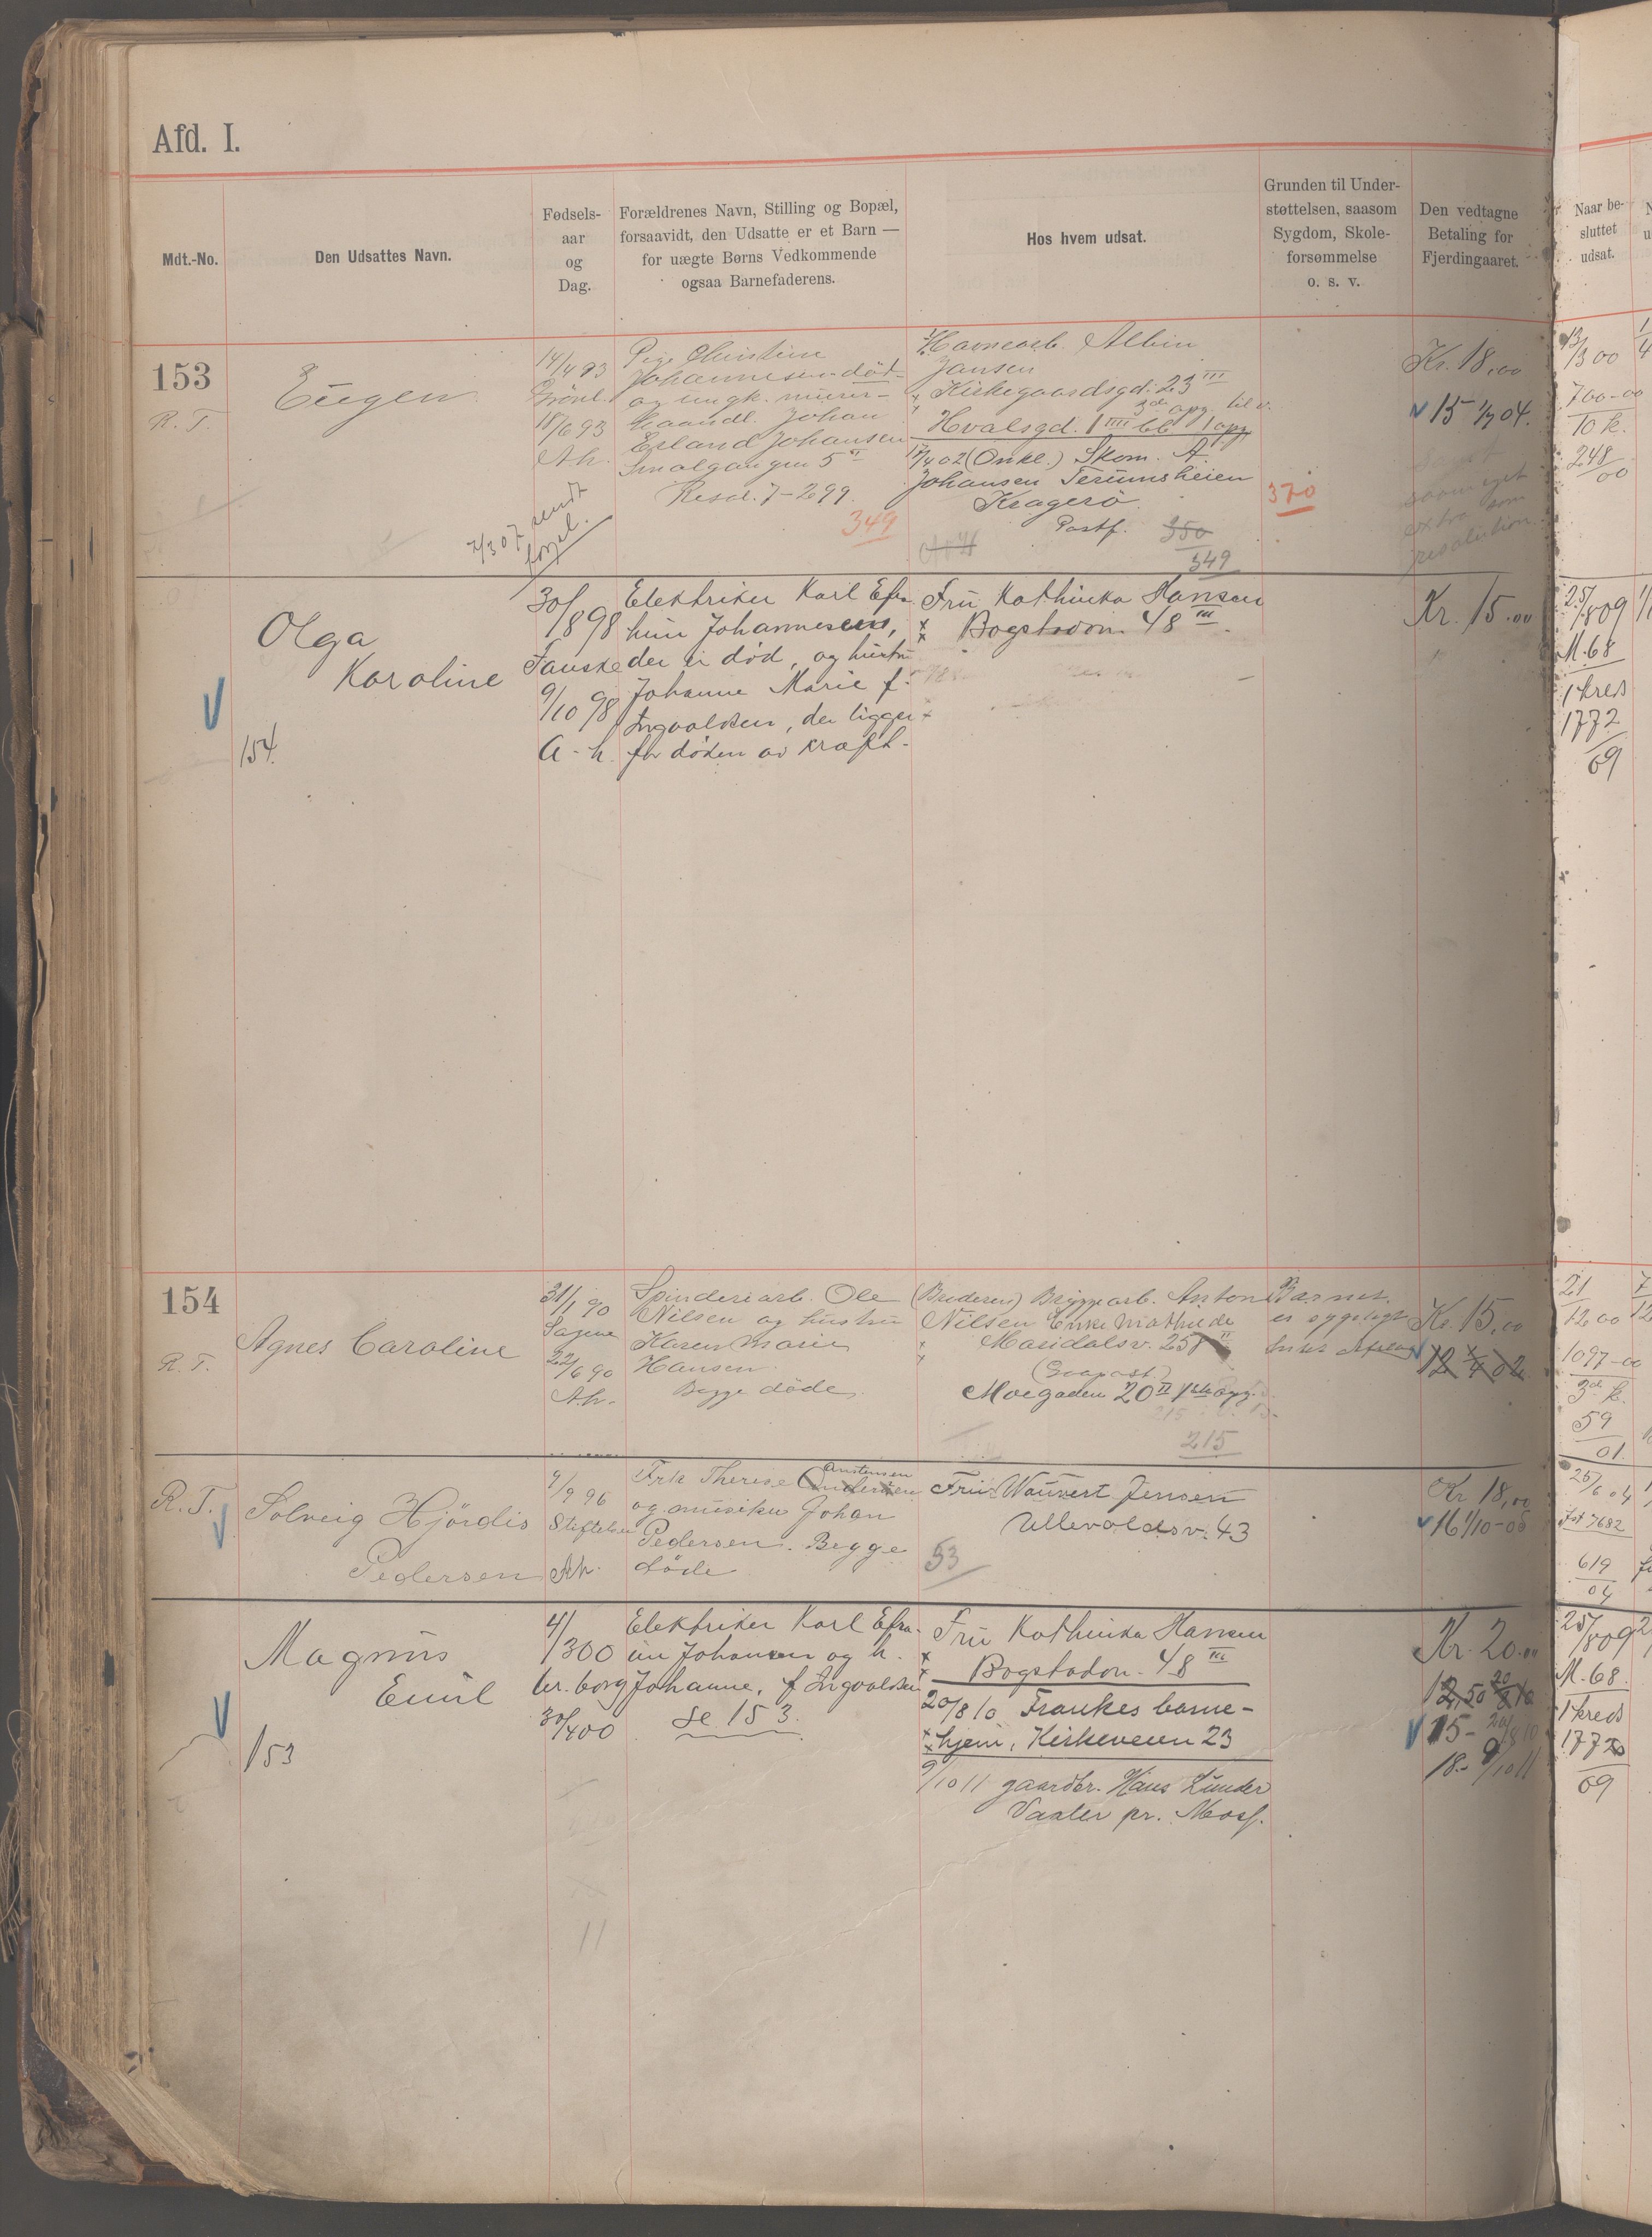 Afd. I.
Mdt.-No.
Den Udsattes Navn.
Fødsels-
aar
og
Dag.
Forældrenes Navn, Stilling og Bopæl,
forsaavidt, den Udsatte er et Barn —
for uægte Børns Vedkommende
ogsaa Barnefaderens.
Hos hvem udsat.
Grunden til Under-
støttelsen, saasom
Sygdom, Skole-
forsømmelse
o. s. v.
Den vedtagne
Betaling for
Fjerdingaaret.
Naar be-
sluttet
udsat.
153
R. T.
Eugen
14/4 93
Grønl.
18/6 93
Ah.
Pige Christine
Johannesen død
og ungk. murer-
haandl. Johan
Erland Johansen
Smalgangen 5
Resol. 7-2 99.
349
7/3 07 sendt
Havnearb. Albin
Jansen
Kirkegaardsgd. 23 III
3de opg. til v.
Hvalsgd. 1 IIII 1 opg
17/4 02 (Onkel.) Skom. A.
Johansen Terumsheien
Kragerø
Postf. 350
349
370
Kr. 18,00
15 1/7 04.
extra som
resolution.
13/3 00
700-00
10 k.
248/00
Olga
Karoline
154
30/8 98
Fauske
9/10 98
A-h.
Elektriker Karl Efra
him Johannesens,
der er død, og hustru
Johanne Marie f.
Ingvaldsen, der ligger
for døden av kræft.
Fru Kathinka Hansen
Bogstadvn. 48 III
Kr. 15.00
25/8 09
M. 68
1 kreds
1772
09
154
R. T.
Agnes Caroline
31/1 90
Sagene
22/6 90
A.h.
Spinderiarb. Ole
Nilsen og hustru
Karen Marie
Hansen
Begge døde
(Broderen) Bryggearb. Anton
Nilsen Enke Mathilde
Maridalsv. 258
Moegaden 20 II 1ste opg.
215
Barnet
er sygeligt
Kr. 15,00
12 1/4 02
21/12 00
1097-00
3de k.
59
01.
R. T.
Solveig Hjørdis
Pedersen
9/9 96
Stiftelsen
Ah.
Frk Therese Andersen
og musiker Johan
Pedersen. Begge
døde
Fru Wauvert Jensen
Ullevoldsv. 43
53
Kr 18,00
16 1/10-05
25/6 04
Jst 7682
619
04
Magnus
Emil
153
4/3 00
30/4 00
Elektriker Karl Efra-
im Johansen og h.
Johanne, f Ingvaldsen
Se 153.
Fru Kathinka Hansen
Bogstadvn. 48 III
20/8 10 Frankes barne-
hjem, Kirkeveien 23
9/10 11 gaardbr. Hans Lunder
Vaaler pr. Moss.
Kr. 20.00
12,50 20/8 10
15 - 20/8 10
18.- 9/10 11
25/8 09
M. 68.
1 kreds
1772
09
11